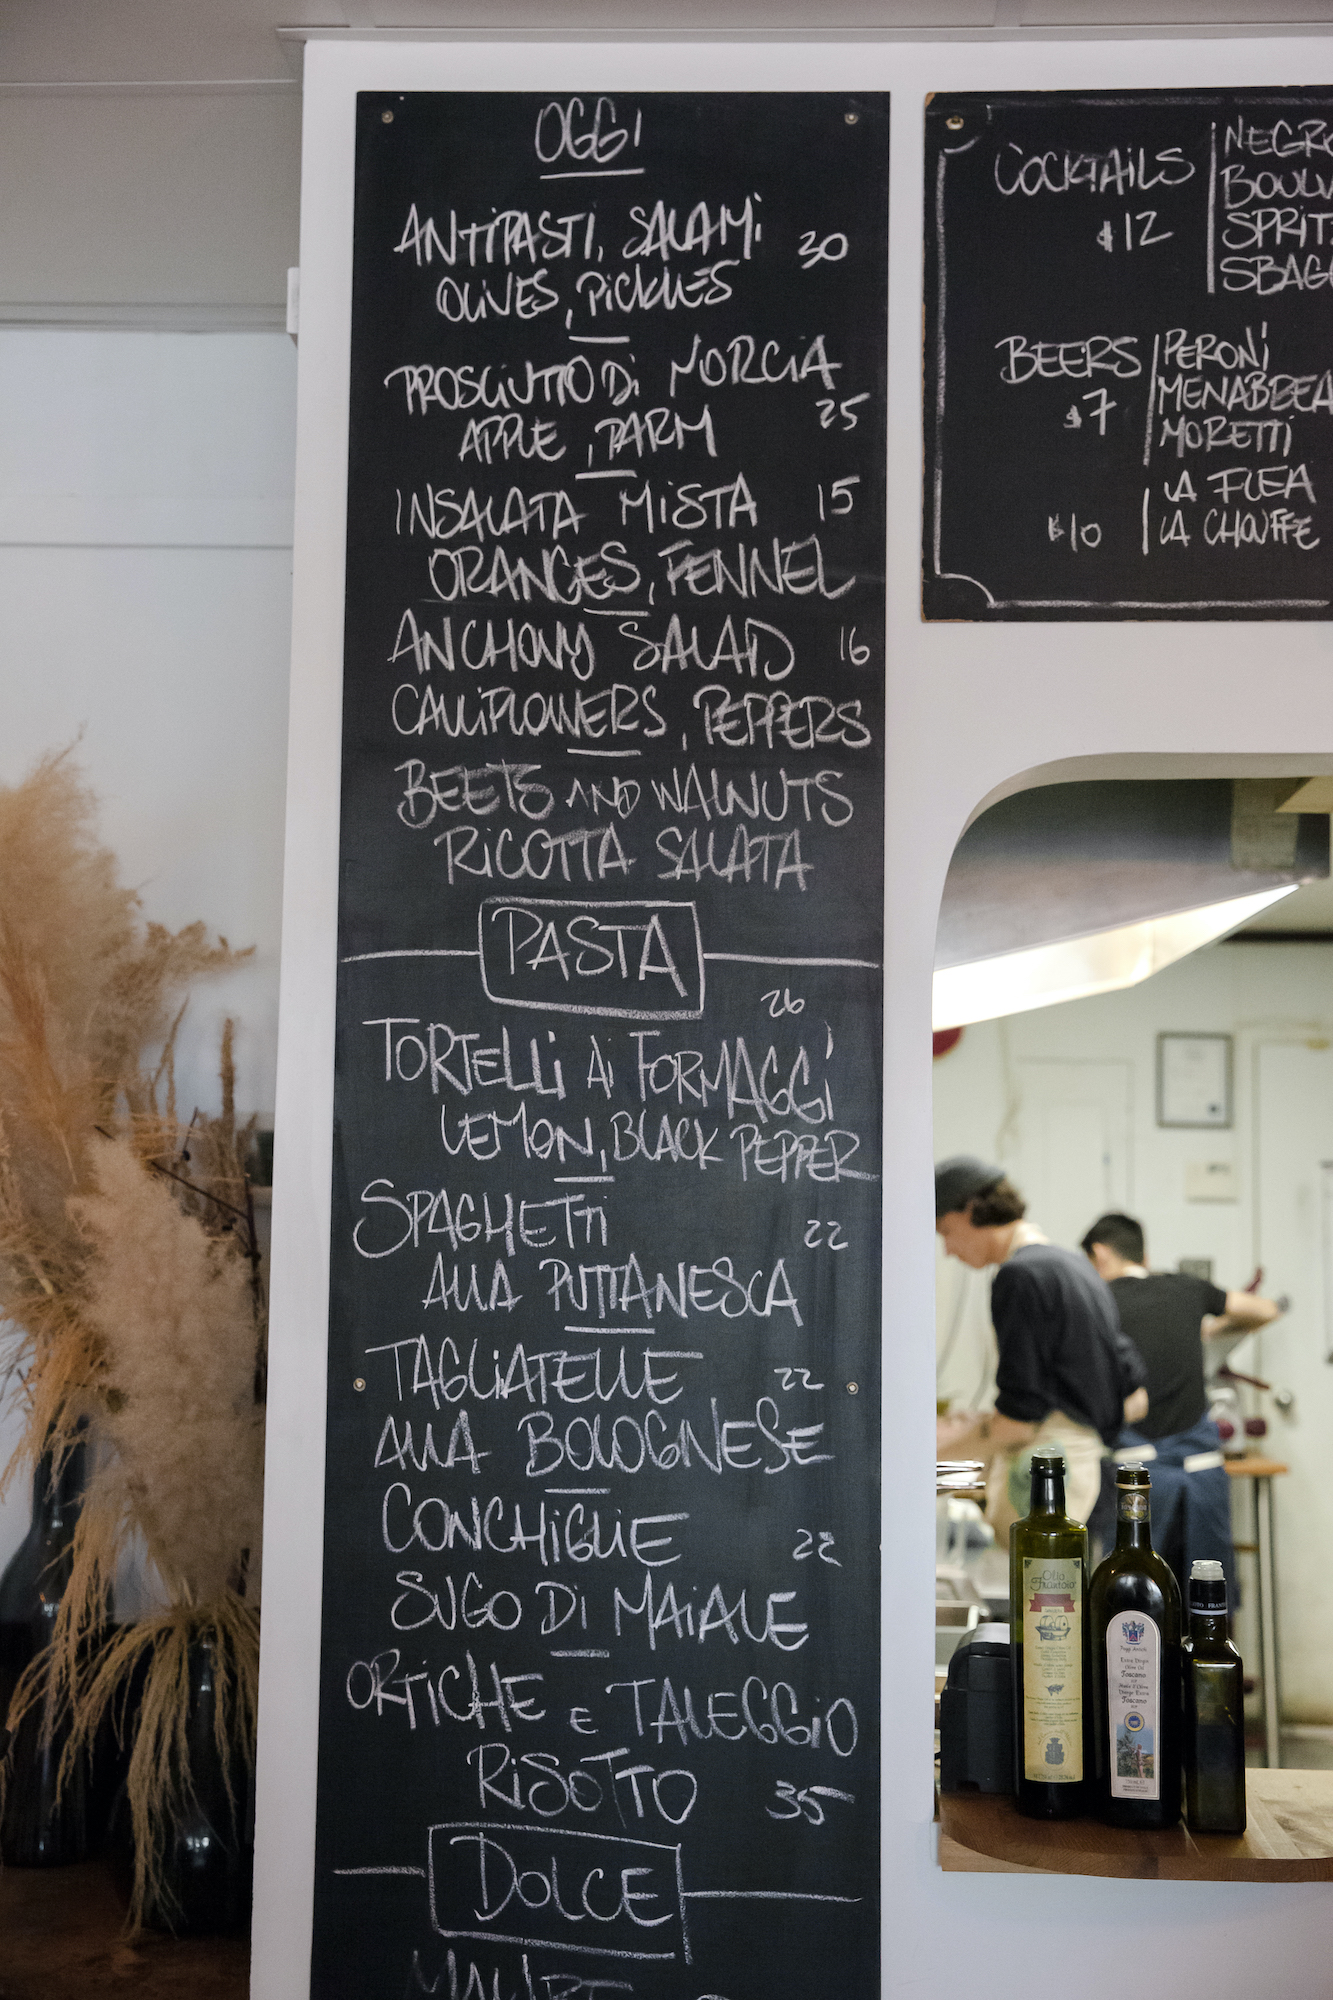 OGGI
ANTIPASTI, SALAMI 30
OLIVES, PICKLES
PROSCIUTTO DI NORCIA
APPLE, PARM 25
INSALATA MISTA 15
ORANGES, FENNEL
ANCHOVY SALAD 16
CAULIFLOWERS, PEPPERS
BEETS AND WALNUTS
RICOTTA SALATA
PASTA
26
TORTELLI AI FORMAGGI
LEMON, BLACK PEPPER
SPAGHETTI 22
ALLA PUTTANESCA
TAGLIATELLE 22
ALLA BOLOGNESE
CONCHIGLIE 22
SUGO DI MAIALE
ORTICHE E TALEGGIO
RISOTTO 35
DOLCE
COCKTAILS
$12
NEGRO
BOULV
SPRIT
SBAG
BEERS
$7
PERONI
MENABREA
MORETTI
$10
LA FLEA
LA CHOUFFE
Olio
Frantoio
Extra Virgin
Olive Oil
Toscano
Toscano